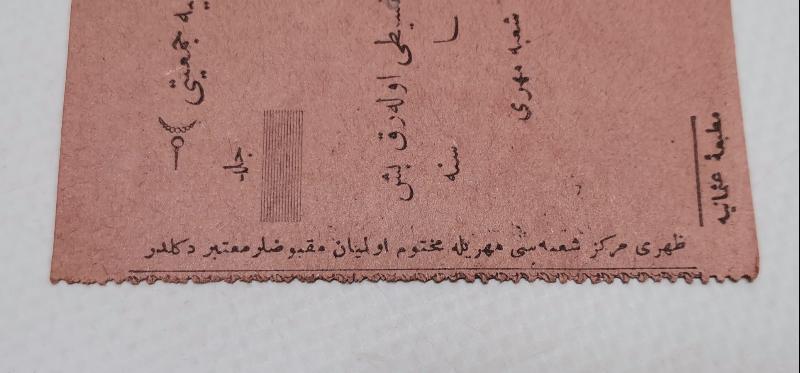 جمعیتی
جلد
اوله رق بش
سنه
شعبه مهری
مطبعهٔ عثمانیه
ظهری مرکز شعبه سی مهریله مختوم اولمیان مقبوضلر معتبر دکلدر